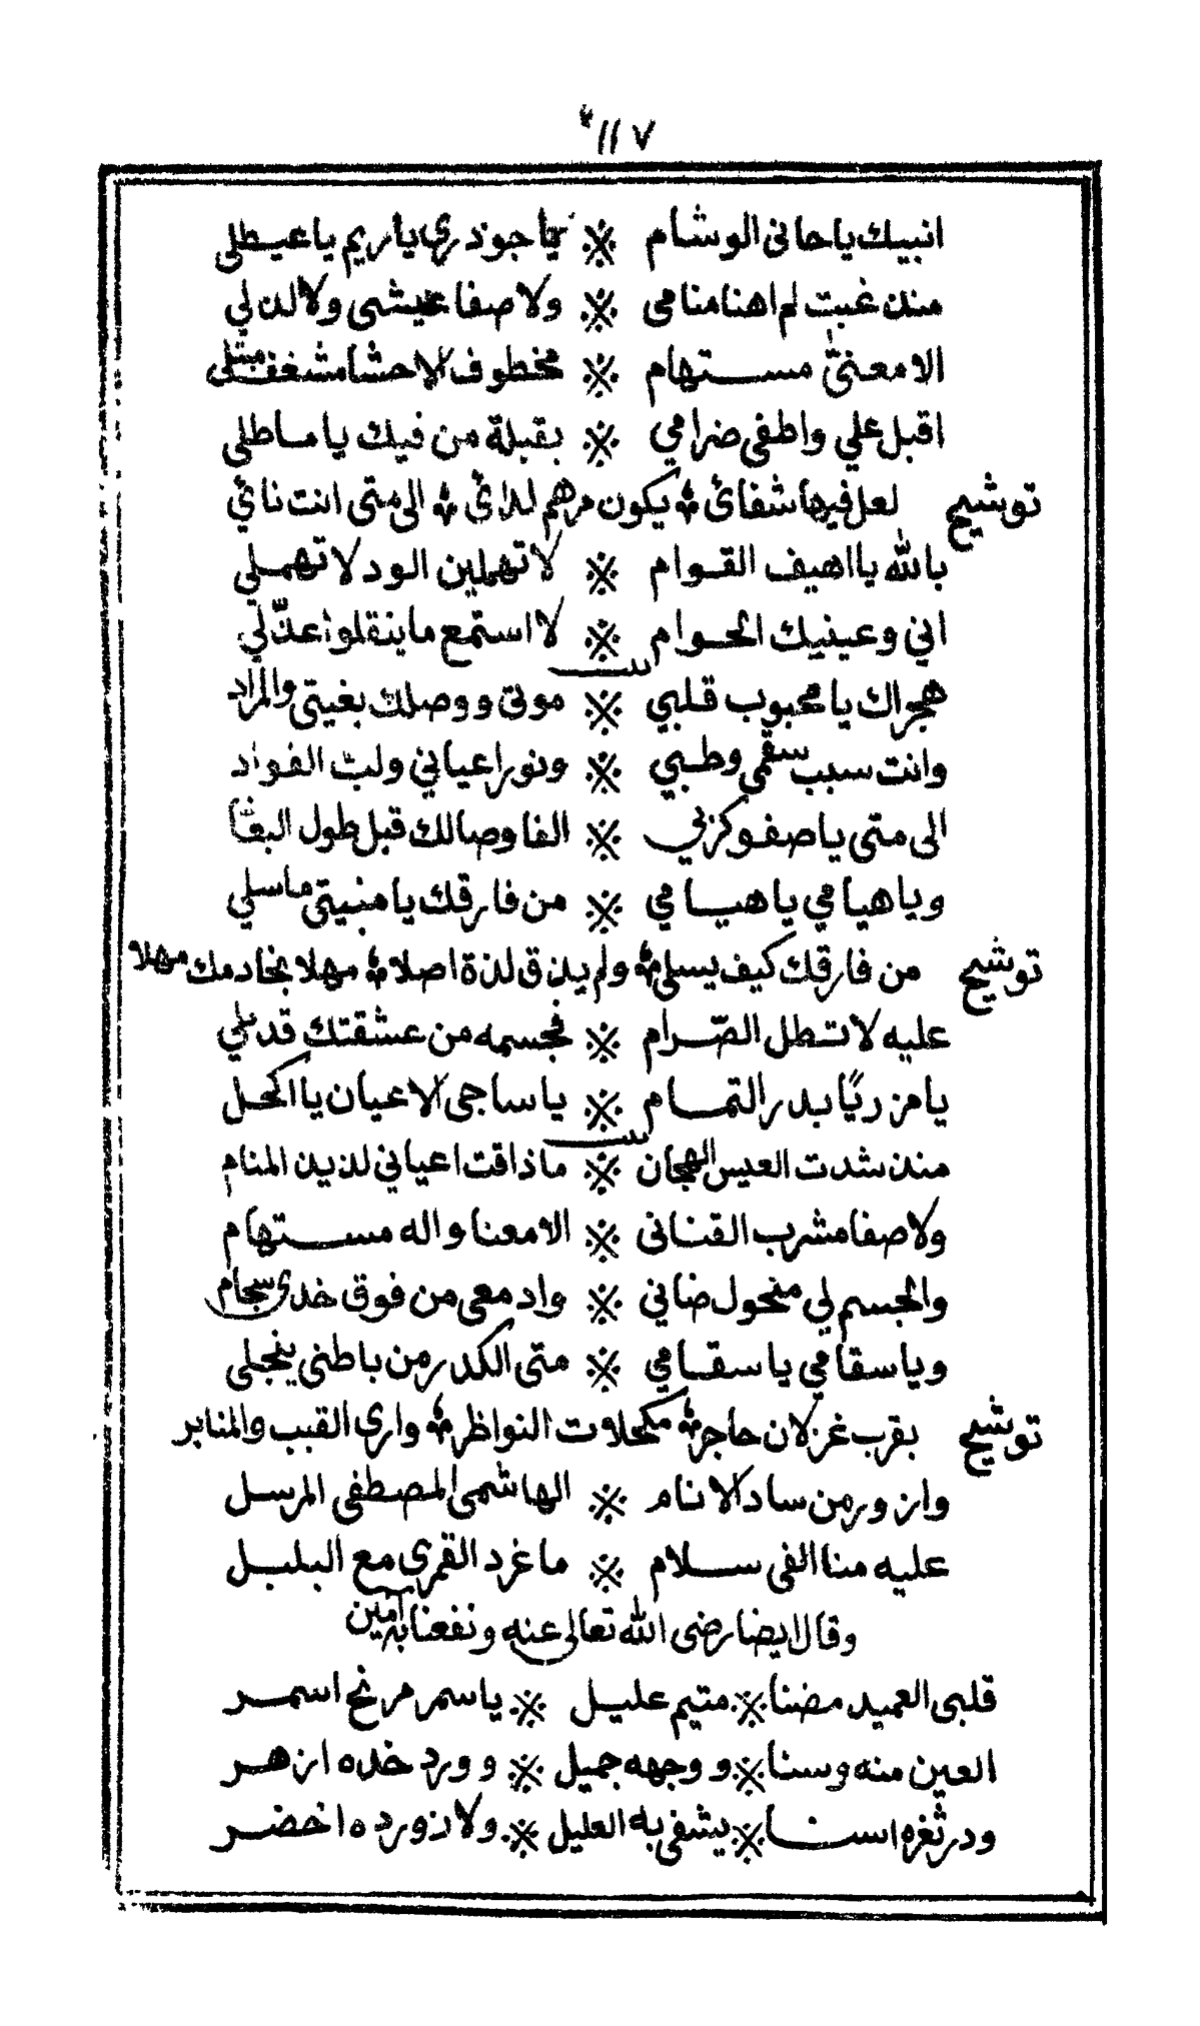 ١١٧
انبيك يا حاني الوشام ※ يا جوذري يا ريم يا عيطلي
منذ غبت لم اهنا منامي ※ ولا صفا عيشي ولا لذ لي
الا معنىّ مستهام ※ مخطوف الاحشا مشغف مبتلى
اقبل علي واطفي ضرامي ※ بقبلة من فيك يا ماطلي
توشيح لعل فيها شفائ ※ يكون مرهم لدائ ※ الى متى انت نائي
بالله يا اهيف القوام ※ لا تهملين الود لا تهملي
اني وعينيك الحوام ※ لا استمع ما ينقلوا عذّلي
بيت
هجراك يا محبوب قلبي ※ موتى ووصلك بغيتي والمراد
وانت سبب سقمى وطبي ※ ونور اعياني ولب الفواد
الى متى يا صفو كزبي ※ الفا وصالك قبل طول البقا
ويا هيامي يا هيامي ※ من فارقك يا منيتى ماسلي
توشيح من فارقك كيف يسلى ※ ولم يذق لذة اصلا ※ مهلا بخادمك مهلا
عليه لا تطل الصّرام ※ فجسمه من عشقتك قد بلي
يا مزريًا بدر التمام ※ يا ساجى الاعيان يا اكحل
بيت
منذ شدت العيس الهجان ※ ما ذاقت اعياني لذيذ المنام
ولا صفا مشرب القناني ※ الا معنا واله مستهام
والجسم لي منحول ضاني ※ وادمعى من فوق خدى سجام
ويا سقامي يا سقامي ※ متى الكدر من باطنى ينجلى
توشيح بقرب غزلان حاجر ※ مكحلات النواظر ※ وارى القبب والمنابر
وازور من ساد الانام ※ الهاشمى المصطفى المرسل
عليه منا الفى سلام ※ ما غرد القمري مع البلبل
وقال ايضا رضى الله تعالى عنه ونفعنا به آمين
قلبى العميد مضنا ※ متيم عليل ※ يا سمر مرنح اسمر
العين منه وسنا ※ ووجهه جميل ※ وورد خده ازهر
ودر ثغره اسنا ※ يشفى به العليل ※ ولازورده اخضر